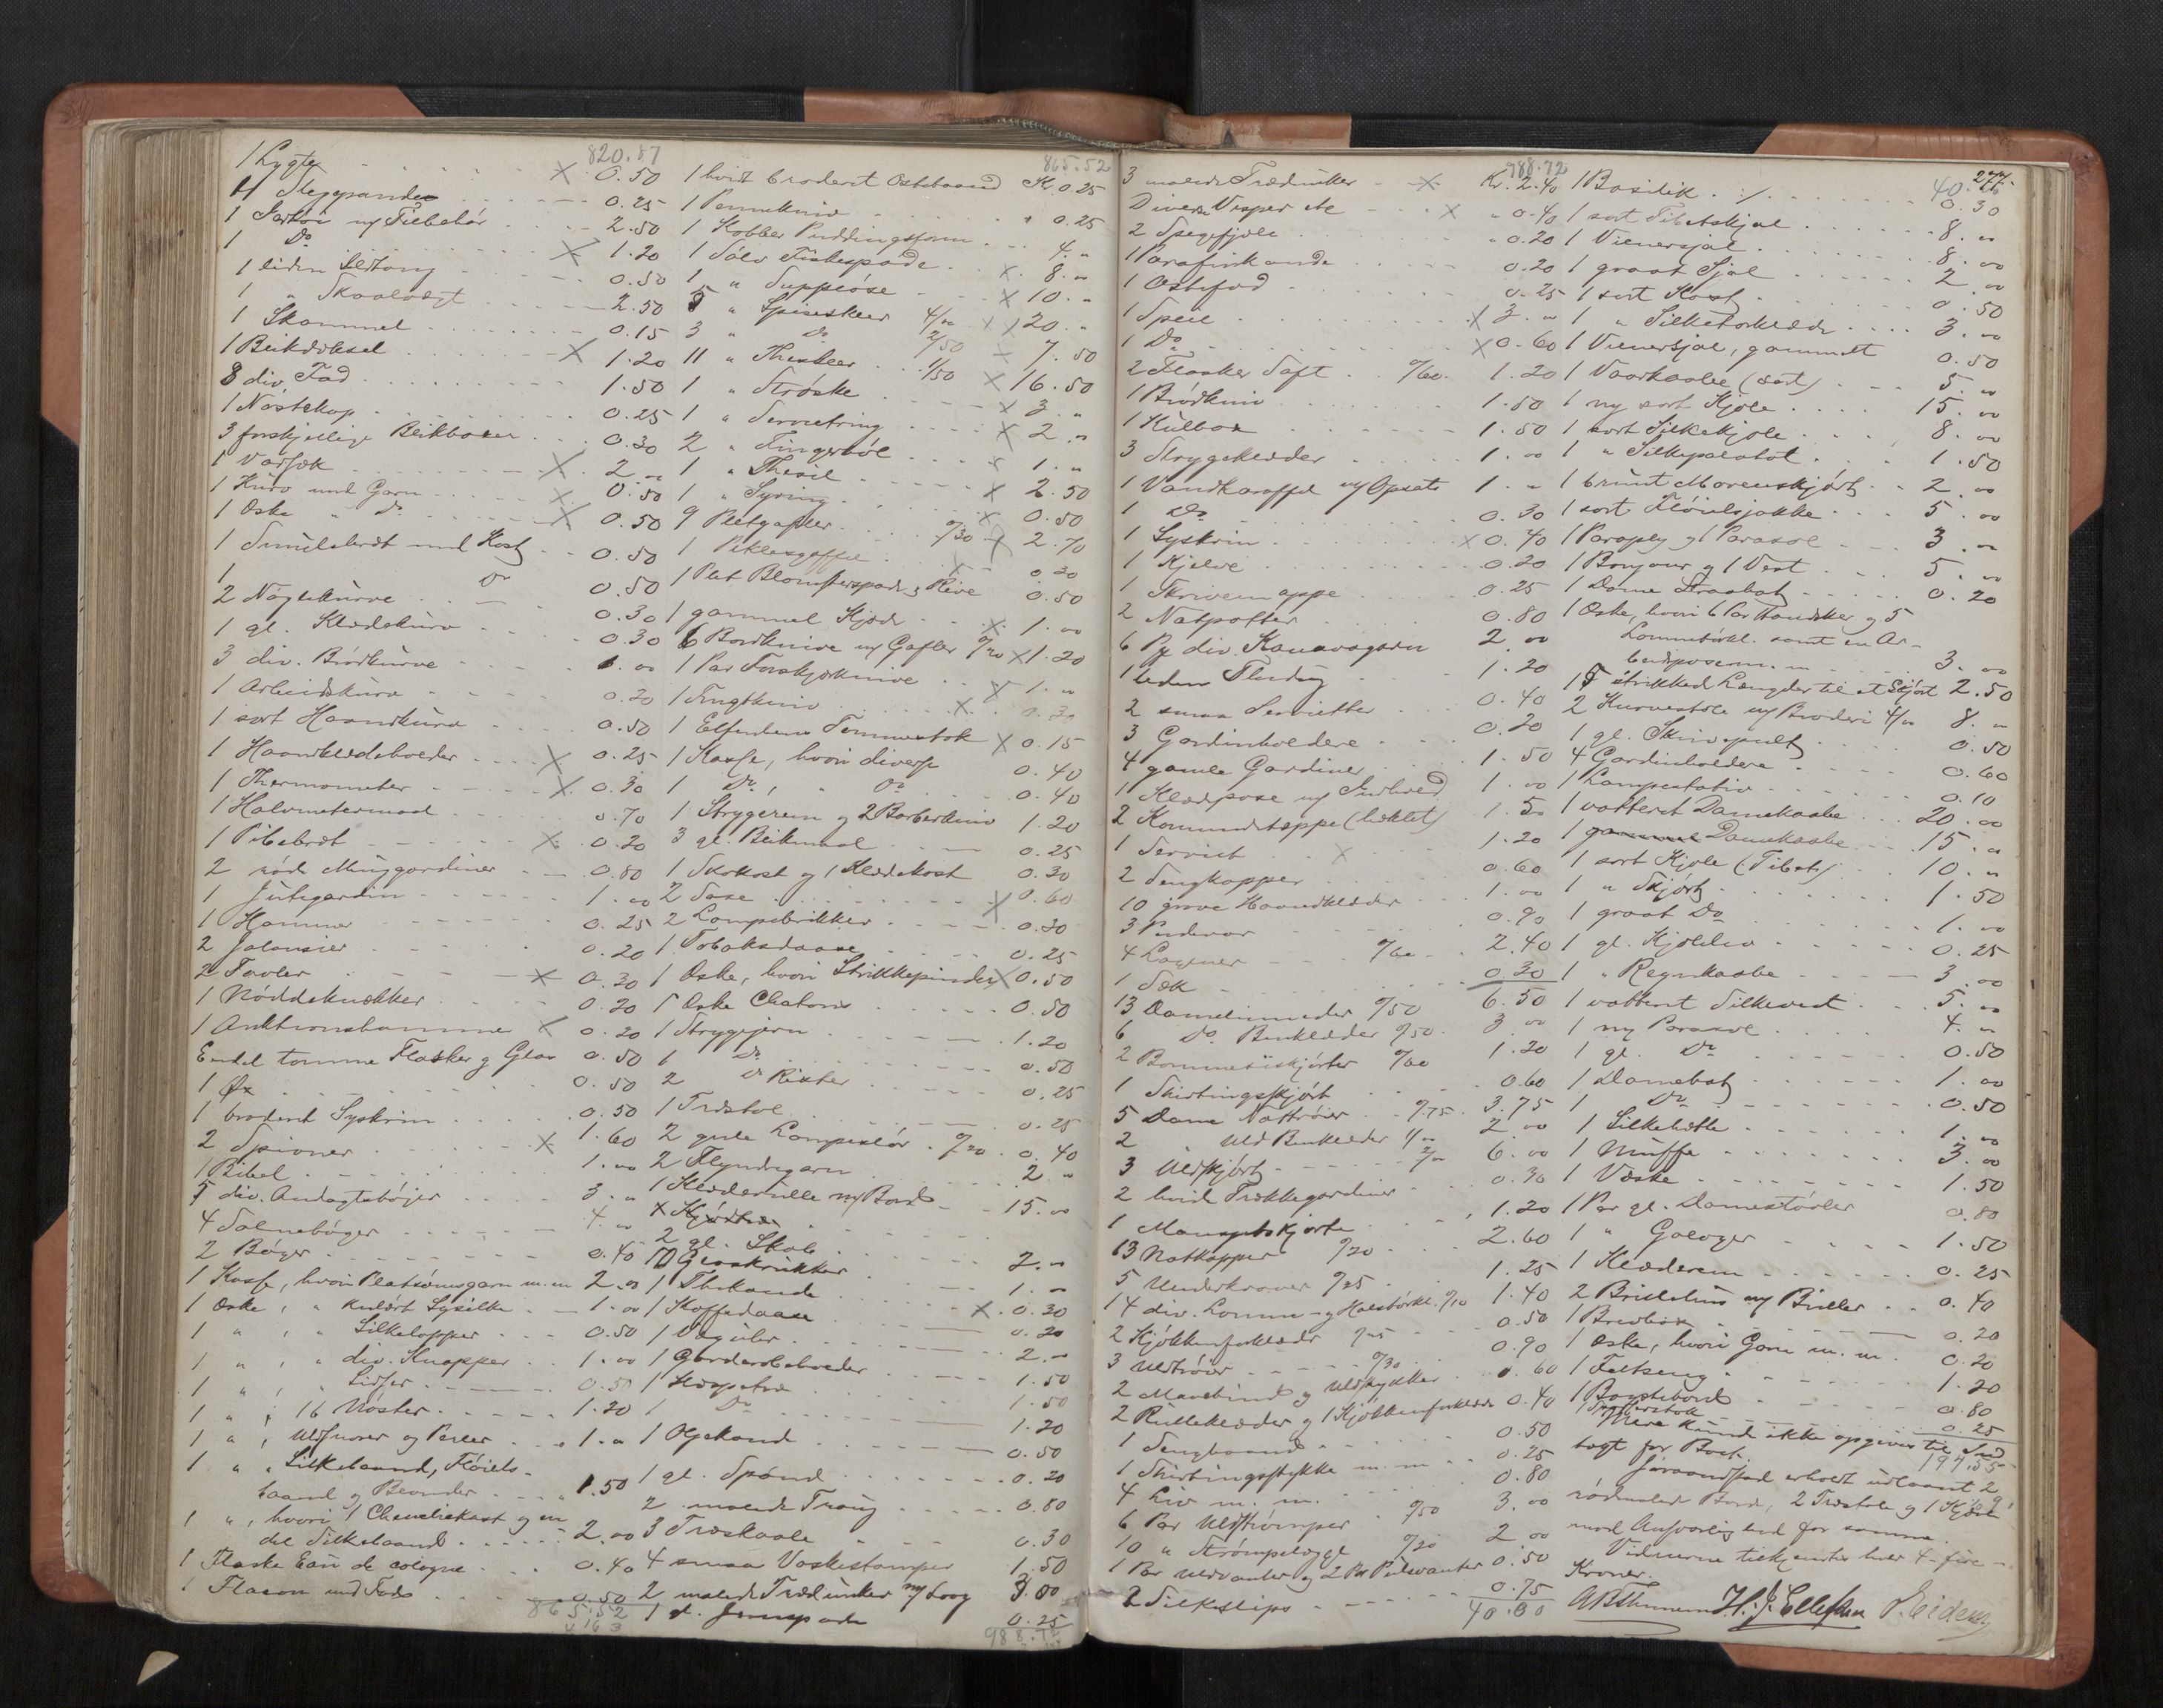 820.87
1 Lygte X 0.50
4 Stegepander 0.25
1 Sertøi m/ Tilbehør 2.50
1 Do X 1.20
1 liden Ildtang 0.50
1 " Skaalvægt 2.50
1 Skammel 0.15
1 Blikdeksel X 1.20
8 div. Fad 1.50
1 Nøstekop 0.25
3 forskjellige Blikboxer 0.30
1 Vadsæk X 2. "
1 Kurv med Garn X 0.50
1 Æske " Do X 0.50
1 Smulebræt med Kost 0.50
1 Do 0.50
2 Nøglekurve 0.30
1 gl. Klædekurv 0.30
3 div. Brødkurve 1. 00
1 Arbeidskurv 0.20
1 sort Haandkurv 0.50
1 Haandklædeholder X 0.25
1 Thermometer X 0.30
1 Halvmetermaal 0.70
1 Pibebræt X 0.20
2 rød Minggardiner 0.80
1 Jutegardin 1. 00
1 Hammer 0.25
2 Jalousier 0.20
2 Tavler X 0.30
1 Nøddeknækker 0.20
1 Auktionshammer X 0.20
Endel tomme Flasker og Glas 0.50
1 Øx 0.50
1 broderet Syskrin 0.50
2 Spioner X 1.60
1 Bibel 1. 00
5 div. Andagtsbøger 3. "
4 Salmebøger 4. "
2 Bøger 0.40
1 Kasse, hvori Pletsømsgarn m.m 2. 00
1 Æske, " kulørt Sysilke 1. 00
1 " , " Silkelapper 0.50
1 " , " div. Knapper 1. 00
1 " , " Lidser 0.50
1 " , 16 Nøster 1.20
1 " , Uldsnorer og Perler 1. "
1 " , Silkebaand, Fløiels-
baand og Blonder 1.50
1 " , hvori 1 Chenillekast og en
del Silkebaand 2. 00
1 Flaske Eau de cologne 0.40
1 Flacon med Fods 0.50
865.52
865.52
1 hvidt broderet Ostebaand K. 0.25
1 Pennekniv 0.25
1 Kobber Puddingsform 4. "
1 Sølv Fiskespade X 8. "
1 " Suppeøse X 10. "
5 " Spiseskeer 4/00 X 20. "
3 " Do 2/50 X 7.50
11 " Theskeer 1/50 X 16.50
1 " Strøske X 3. "
1 " Servietring X 2. "
2 " Fingerbøl X 1. "
1 " Thesil X 2.50
1 " Syring X 0.50
9 Pletgafler 0/30 X 2.70
1 Piklesgaffel X 0.20
1 Plet Blomsterspade, Rive 0.50
1 gammel Kjæde X 1. 00
6 Bordknive m/ Gafler 0/20 X 1.20
1 Par Forskjærknive X 1. "
1 Frugtkniv X 0.30
1 Elfenbens Tommestok X 0.15
1 Kasse, hvori diverse 0.40
1 Do , " Do 0.40
1 Strygerem og 2 Barberknive 1.20
3 gl. Blikmaal 0.25
1 Skokost og 1 Klædekost 0.30
2 Saxe X 0.60
2 Lampebrikker 0.30
1 Tobaksdaase 0.25
1 Æske, hvori Strikkepinder X 0.50
1 Æske Chatons 0.50
1 Strygejern 1.20
1 Do 0.50
2 Do Rister 0.25
1 Træstol 0.25
2 gule Lampeslør 0/20 0.40
2 Flyndregarn 2. "
1 Klæderulle m/ Bord 15. 00
2 gl. Skab 2. "
10 Glaskrukker 1. "
1 Thekande X 0.30
1 Kaffedaase 0.20
1 Væguhr 2. "
1 Garderobeholder 1.50
1 Kløpetræ 1.50
1 Do 1.20
1 Oljekande 0.50
1 gl. Spand 0.20
2 malede Traug 0.80
3 Træskaale 0.30
4 smaa Vaskestamper 1.50
2 malede Trædunker m/ Laag 3.00
1 st. Jernspade 0.25
988.72
988.72
3 malede Trædunker X Kr. 2.40
Diverse Vesper etc X " 0.40
2 Spegefjæle " 0.20
1 Parafinkande 0.20
1 Ostefad 0.25
1 Speil X 3. "
1 Do X 0.60
2 Flasker Saft 0/60 1.20
1 Brødkniv 1.50
1 Kulbox 1.50
3 Strygeklæder 1. 00
1 Vandkaraffel m/ Opsats 1. "
1 Do 0.30
1 Syskrin X 0.40
1 Kjelke 0.20
1 Skrivemappe 0.25
2 Natpotter 0.80
6 Pk div. Kanavagarn 2. 00
1 liden 1.20
2 smaa Servietter 0.40
3 Gardinholdere 0.20
4 gamle Gardiner 1.50
1 Klædpose m/ Indhold 1. 00
2 Kommodetæppe (heklet) 1.50
1 Serviet X 1.20
2 Sengkapper 0.60
10 grove Haandklæder 1. 00
3 Pudevar 0.90
4 Lagener 0/60 2.40
1 Sæk 0.30
13 Damelinneder 0/50 6.50
6 Do Benklæder 0/50 3. 00
2 Bommesiskjørter 0/60 1.20
1 Shirtingsskjørt 0.60
5 Dame Nattrøier 0/75 3.75
2 Uld Benklæder 1/00 2. 00
3 Uldskjørt 2/00 6. 00
2 hvid Trækkegardiner 0.30
1 Mansjetskjorte 1.20
13 Natkapper 0/20 2.60
5 Underkraver 0/25 1.25
14 div. Lomme- og Halstørkl. 0/10 1.40
2 Kjøkkenforklæder 0/25 0.50
3 Uldtrøier 0/30 0.90
2 Mavebind og Uldstykker 0.60
2 Rulleklæder og 1 Kjøkkenforklæde 0.40
1 Sengbaand 0.50
1 Shirtingsstykke m. m 0.25
4 Liv m. m. 0.80
6 Par Uldstrømper 0/50 3. 00
10 " Strømpelægge 0/20 2. 00
1 Par Uldvanter og 2 Par Pulsvanter 0.50
2 Silkeslips 0.75
277.
40.
1 Basilik 0.30
1 sort Tibetskjal 8. "
1 Vienersjal 8. 00
1 graat Sjal 2. 00
1 sort Kast 0.50
1 " Silketørklæde 3. 00
1 Vienersjal, gammelt 0.50
1 Vaarkaabe (sort) 5. "
1 ny sort Kjole 15. 00
1 sort Silkekjole 8. 00
1 " Silkepaletot 1.50
1 brunt Moreenskjørt 2. 00
1 sort Fløielsjakke 5. 00
1 Paraply og 1 Parasol 3. "
1 Bonjour og 1 Vest 5. 00
1 Dame Straahat 0.20
1 Æske, hvori 6 Par Handsker og 5
Lommetørkl. samt en Ar-
beidspose m. m 3. 00
15 strikkede Længder til et Skjørt 2.50
2 Kurvestole m/ Broderi 4/00 8. "
1 gl. Skrivepult 0.50
4 Gardinholdere 0.60
1 Lampestativ 0.10
1 vatteret Damekaabe 20. 00
1 gammel Damekaabe 15. "
1 sort Kjole (Tibet) 10. "
1 " Skjørt 1.50
1 graat Do 1. 00
1 gl. Kjoleliv 0.25
1 " Regnkaabe 3. 00
1 vatteret Silkevest 5. 00
1 ny Parasol 4. "
1 gl. Do 0.50
1 Damehat 1. 00
1 Do 0.50
1 Silkehætte 1. 00
1 Muffe 3. 00
1 Væske 1.50
1 Par gl. Damestøvler 0.80
1 " Galoger 1.50
1 Klæderem 0.25
2 Brillehus m/ Briller 0.40
1 Brevbox 0.20
1 Æske, hvori Garn m. m. 0.20
1 Feltseng 1.20
1 Børstebord 0.80
0.25
Mere kunde ikke opgives til Ind-
tægt for Boet. 197.55
Forvandtskab erholdt udlaant 2
rødmalede Bord, 2 Træstole og 1 Kjæle
mod Ansvarlighed for samme.
Vidnerne tilkjendtes hver 4- fire -
Kroner.
H. J. Ellefsen P. Eidem